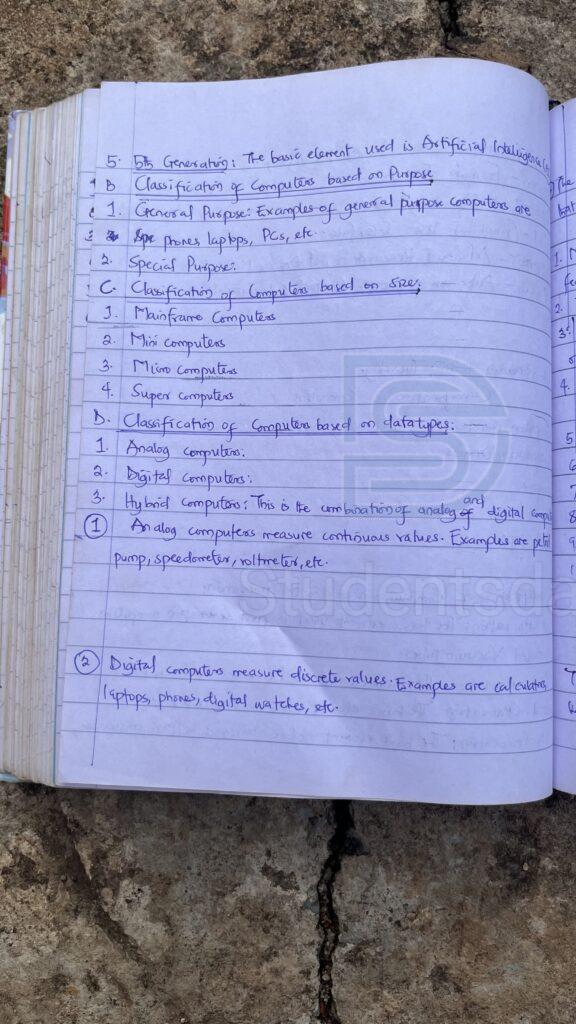 5. 5th Generation: The basic element used is Artificial Intelligence
B Classification of Computers based on Purpose
1. General Purpose: Examples of general purpose computers are
phones, laptops, PCs, etc.
2. Special Purpose:
C. Classification of Computers based on Size:
1. Mainframe Computers
2. Mini computers
3. Micro computers
4. Super computers
D. Classification of Computers based on datatypes:
1. Analog computers:
2. Digital Computers:
3. Hybrid computers: This is the combination of analog and digital
1 Analog computers measure continuous values. Examples are
pump, speedometer, voltmeter, etc.
Studentsda
2 Digital computers measure discrete values. Examples are calculators,
laptops, phones, digital watches, etc.